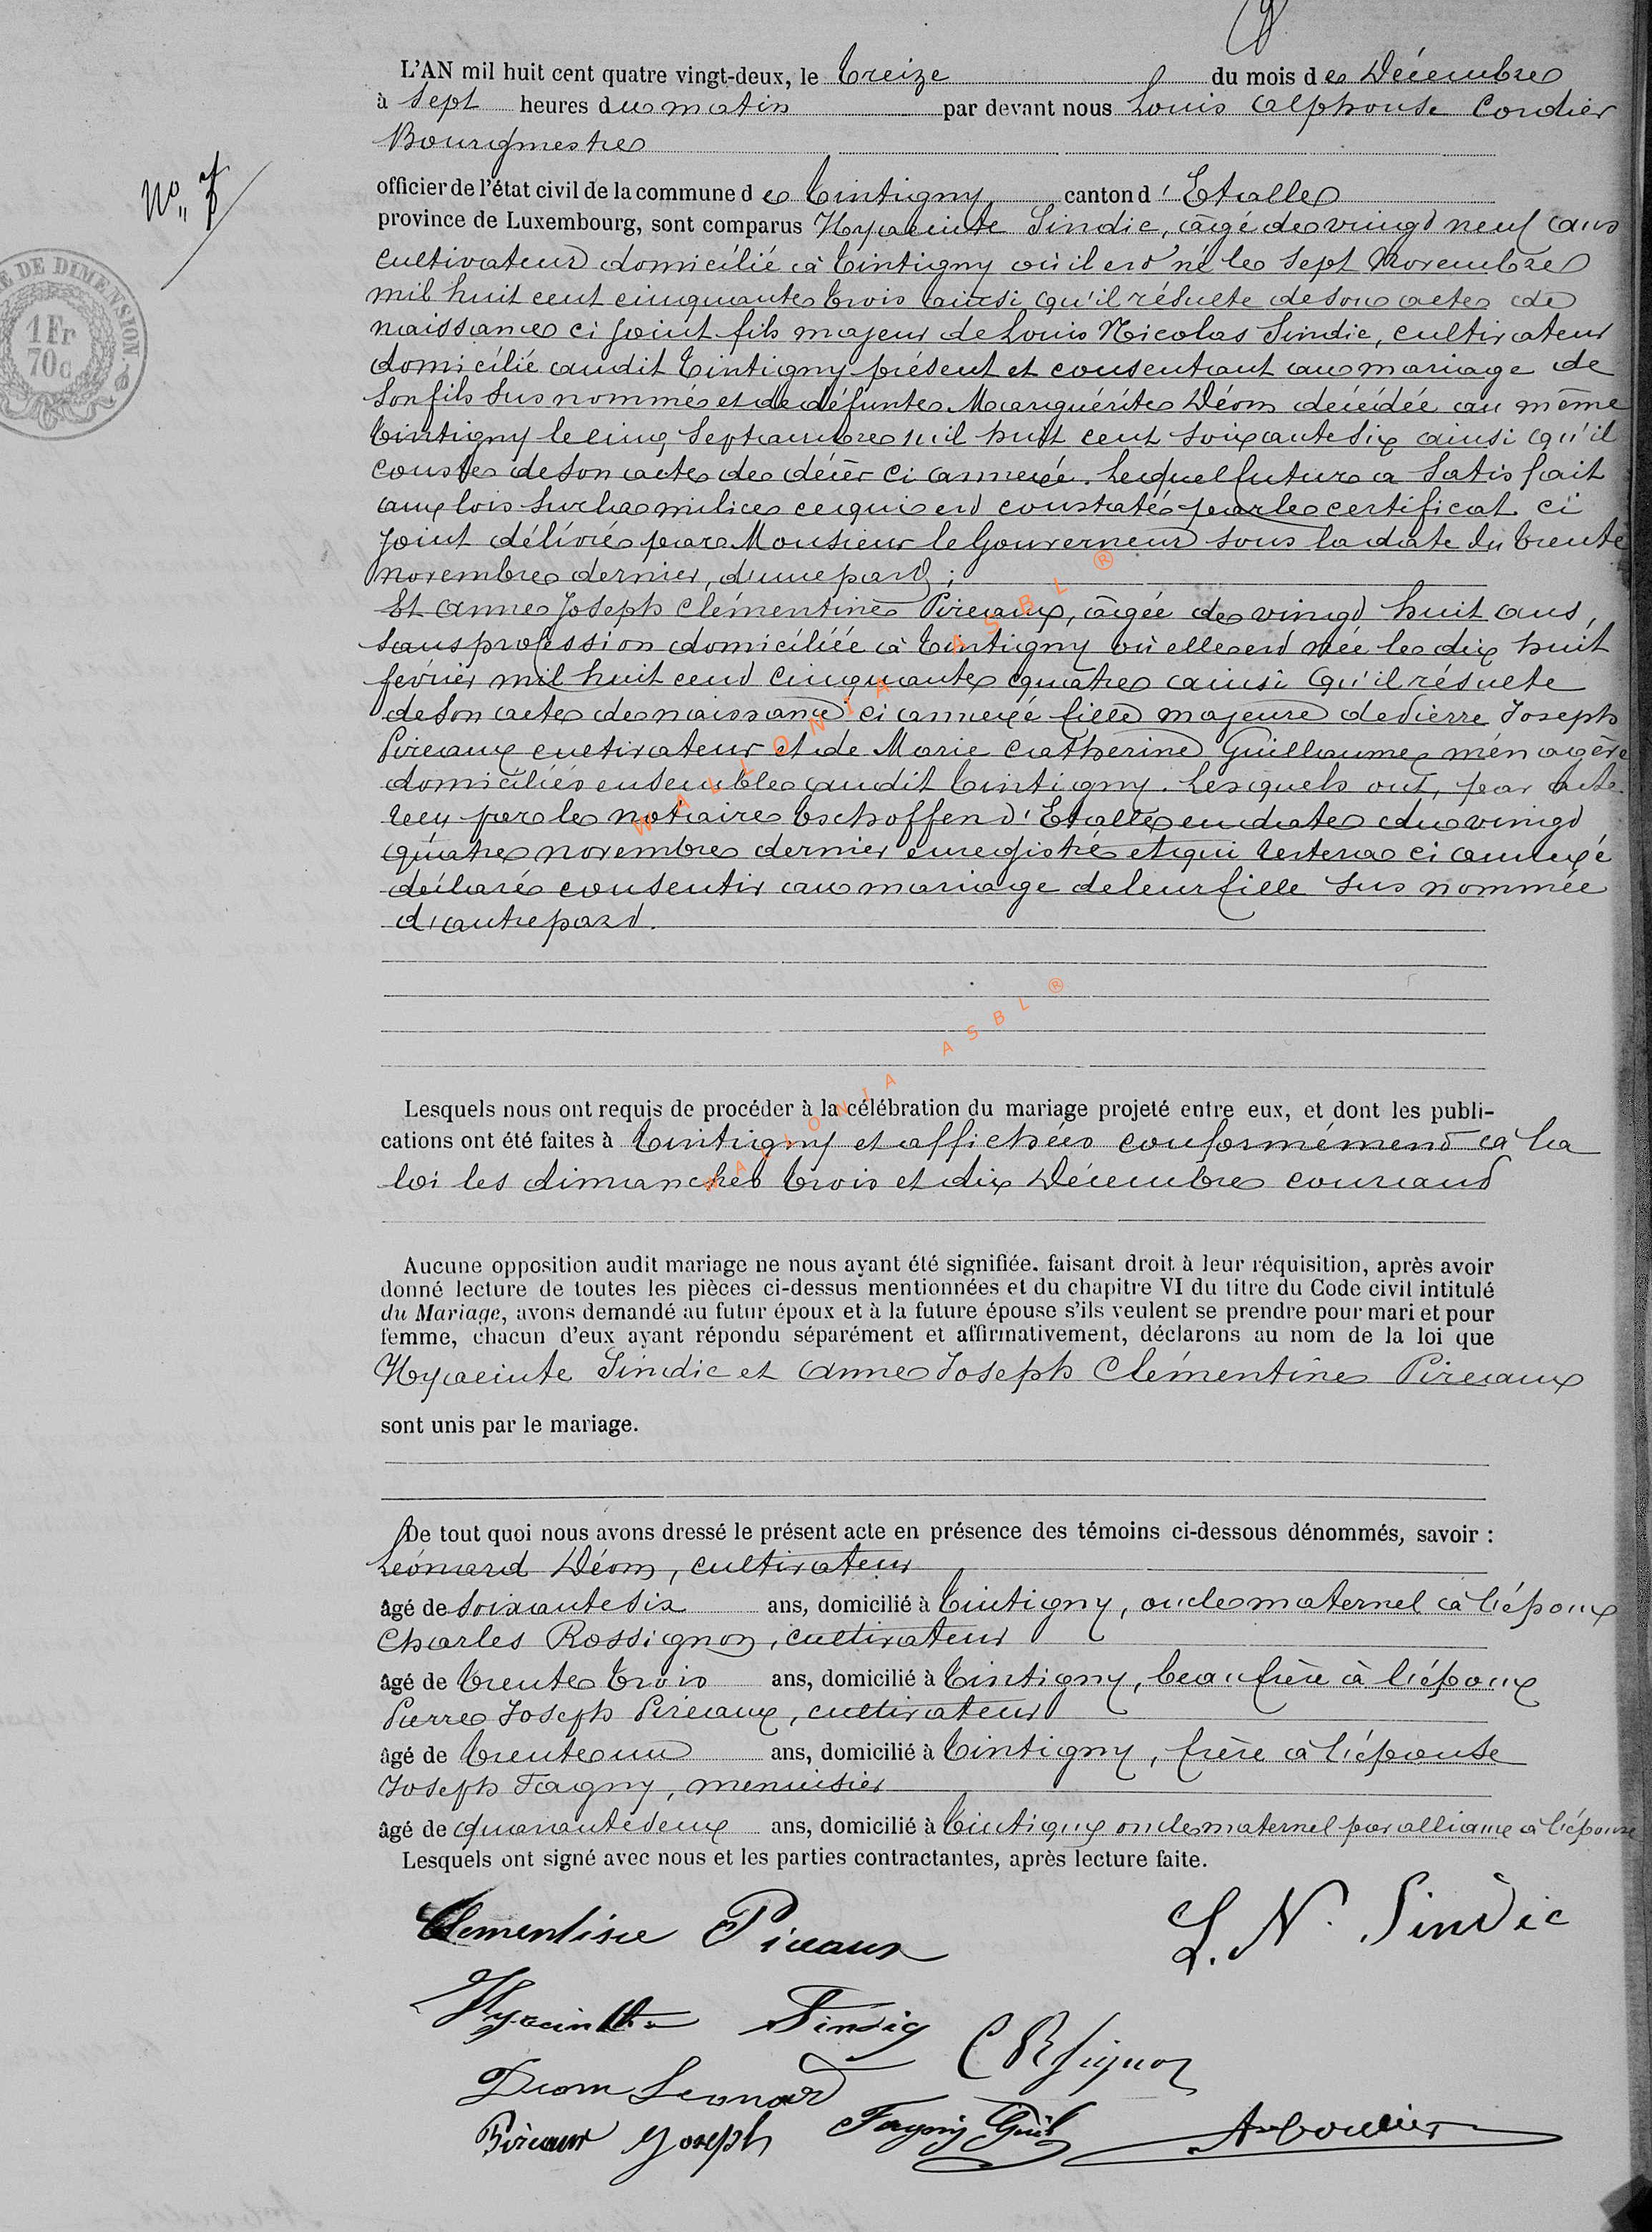 L'AN mil huit cent quatre vingt-deux, le treize du mois de Décembre
à sept heures du matin par devant nous Louis Alphonse Cordier
Bourgmestre
officier de l'état civil de la commune de Tintigny canton d'Etalle
N° 7
province de Luxembourg, sont comparus Hyacinte Sindic, âgé de vingt neuf ans
cultivateur domicilié à Tintigny où il est né le sept Novembre
mil huit cent cinquante trois ainsi qu'il résulte de son acte de
naissance ci joint fils majeur de Louis Nicolas Sindic, cultivateur
domicilié audit Tintigny présent et consentant au mariage de
son fils sus nommé et de défunte Marguérite Déom décédée au même
Tintigny le cinq Septembre mil huit cent soixante six ainsi qu'il
conste de son acte de décès ci annexé. Lequel futur a satisfait
aux lois sur la milice ce qui est constaté par le certificat ci
joint délivré par Monsieur le Gouverneur sous la date du trente
novembre dernier, d'une part;
Et Anne Joseph Clémentine Pireaux, âgée de vingt huit ans,
sans profession domiciliée à Tintigny où elle est née le dix huit
février mil huit cent cinquante quatre ainsi qu'il résulte
de son acte de naissance ci annexé fille majeure de Pierre Joseph
Pireaux cultivateur et de Marie Catherine Guillaume ménagère
domiciliés ensemble audit Tintigny. Lesquels ont, par acte
reçu par le notaire Tschoffen d'Etalle en date du vingt
quatre novembre dernier enregistré et qui restera ci annexé
déclaré consentir au mariage de leur fille sus nommée
d'autre part.
Lesquels nous ont requis de procéder à la célébration du mariage projeté entre eux, et dont les publi-
cations ont été faites à Tintigny et affichées conformément à la
loi les dimanches trois et dix Décembre courant
Aucune opposition audit mariage ne nous ayant été signifiée. faisant droit à leur réquisition, après avoir
donné lecture de toutes les pièces ci-dessus mentionnées et du chapitre VI du titre du Code civil intitulé
du Mariage, avons demandé au futur époux et à la future épouse s'ils veulent se prendre pour mari et pour
femme, chacun d'eux ayant répondu séparément et affirmativement, déclarons au nom de la loi que
Hyacinte Sindic et Anne Joseph Clémentine Pireaux
sont unis par le mariage.
De tout quoi nous avons dressé le présent acte en présence des témoins ci-dessous dénommés, savoir :
Léonard Déom, cultivateur
âgé de soixante six ans, domicilié à Tintigny, oncle maternel à l'époux
Charles Rossignon, cultivateur
âgé de trente trois ans, domicilié à Tintigny, beau frère à l'époux
Pierre Joseph Pireaux, cultivateur
âgé de trente un ans, domicilié à Tintigny, frère à l'épouse
Joseph Fagny, menuisier
âgé de quarante deux ans, domicilié à Tintigny oncle maternel par alliance à l'épouse
Lesquels ont signé avec nous et les parties contractantes, après lecture faite.
Clementine Pireaux L. N. Sindic
Hyacinthe Sindic
Deom Leonard
Pireaux Joseph Fagny
E DE DIMENSION.
1 Fr
70c
WALLONIA ASBL ®
WALLONIA ASBL ®